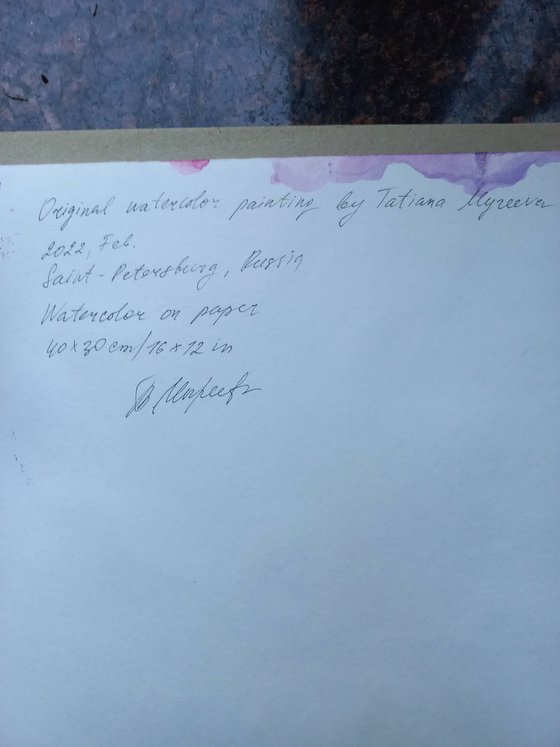 Original watercolor painting by Tatiana Myreeva
2022, Feb.
Saint-Petersburg, Russia
Watercolor on paper
40x30cm/16x12 in